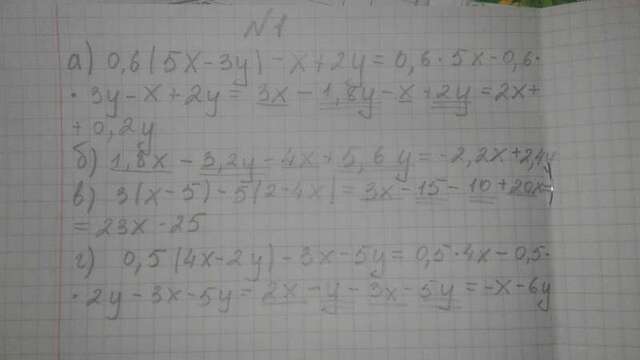 №1
а) 0,6(5x-3y)-x+2y=0,6·5x-0,6·
·3y-x+2y=3x-1,8y-x+2y=2x+
+0,2y
б) 1,8x-3,2y-4x+5,6y=-2,2x+2,4y
в) 3(x-5)-5(2-4x)=3x-15-10+20x=
=23x-25
г) 0,5(4x-2y)-3x-5y=0,5·4x-0,5·
·2y-3x-5y=2x-y-3x-5y=-x-6y